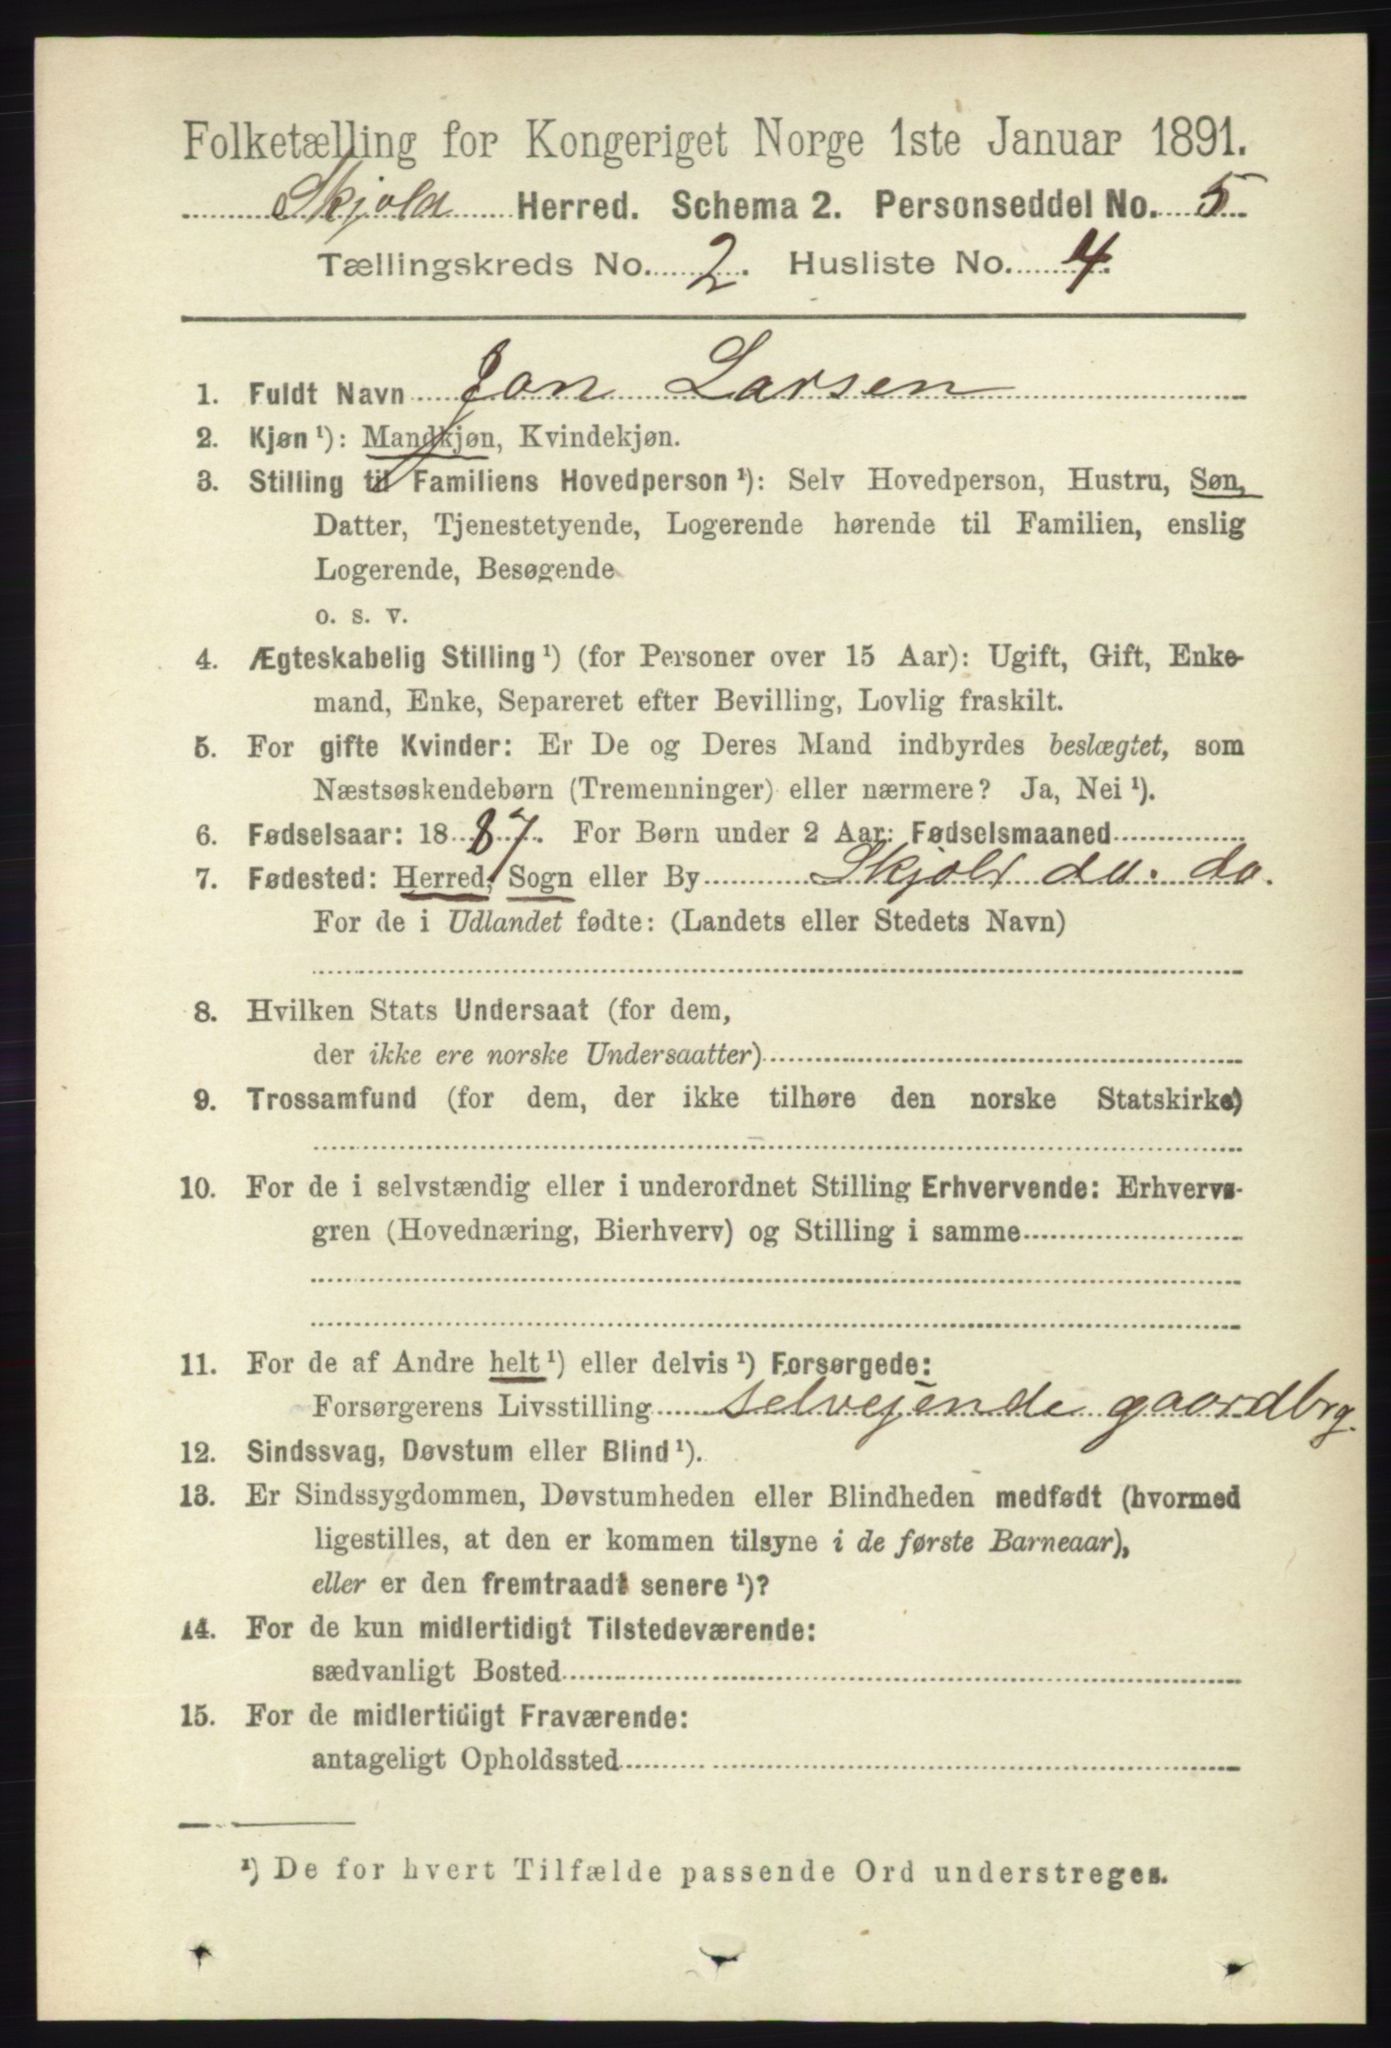 Folketælling for Kongeriget Norge 1ste Januar 1891.
Skjold Herred. Schema 2. Personseddel No. 5
Tællingskreds No. 2. Husliste No. 4.
1. Fuldt Navn Jon Larsen
2. Kjøn¹): Mandkjøn, Kvindekjøn.
3. Stilling til Familiens Hovedperson¹): Selv Hovedperson, Hustru, Søn,
Datter, Tjenestetyende, Logerende hørende til Familien, enslig
Logerende, Besøgende
o. s. v.
4. Ægteskabelig Stilling¹) (for Personer over 15 Aar): Ugift, Gift, Enke-
mand, Enke, Separeret efter Bevilling, Lovlig fraskilt.
5. For gifte Kvinder: Er De og Deres Mand indbyrdes beslægtet, som
Næstsøskendebørn (Tremenninger) eller nærmere? Ja, Nei¹).
6. Fødselsaar: 1887. For Børn under 2 Aar: Fødselsmaaned
7. Fødested: Herred, Sogn eller By Skjold do. do.
For de i Udlandet fødte: (Landets eller Stedets Navn)
8. Hvilken Stats Undersaat (for dem,
der ikke ere norske Undersaatter)
9. Trossamfund (for dem, der ikke tilhøre den norske Statskirke)
10. For de i selvstændig eller i underordnet Stilling Erhvervende: Erhvervs-
gren (Hovednæring, Bierhverv) og Stilling i samme
11. For de af Andre helt¹) eller delvis¹) Forsørgede:
Forsørgerens Livsstilling selvejende gaardbrg.
12. Sindssvag, Døvstum eller Blind¹).
13. Er Sindssygdommen, Døvstumheden eller Blindheden medfødt (hvormed
ligestilles, at den er kommen tilsyne i de første Barneaar),
eller er den fremtraadt senere¹)?
14. For de kun midlertidigt Tilstedeværende:
sædvanligt Bosted
15. For de midlertidigt Fraværende:
antageligt Opholdssted
¹) De for hvert Tilfælde passende Ord understreges.